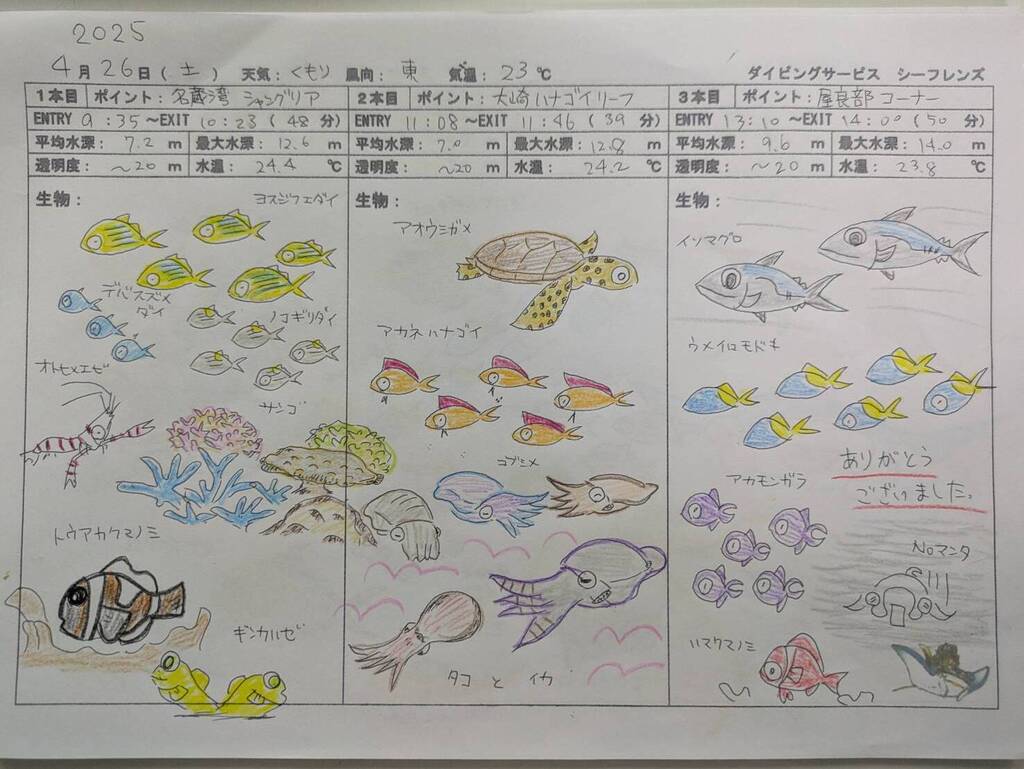 2025
4月26日(土) 天気:くもり 風向:東 気温:23℃ ダイビングサービス シーフレンズ
1本目 ポイント:名蔵湾 シャングリア
ENTRY 9:35~EXIT 10:23(48分)
平均水深:7.2m 最大水深:12.6m
透明度:~20m 水温:24.4℃
生物:
ヨスジフエダイ
デバスズメ
ダイ
ノコギリダイ
オトヒメエビ
サンゴ
トウアカクマノミ
ギンガハゼ
2本目 ポイント:大崎ハナゴイリーフ
ENTRY 11:08~EXIT 11:46(39分)
平均水深:7.0m 最大水深:12.8m
透明度:~20m 水温:24.2℃
生物:
アオウミガメ
アカネハナゴイ
コブシメ
タコとイカ
3本目 ポイント:屋良部コーナー
ENTRY 13:10~EXIT 14:00(50分)
平均水深:9.6m 最大水深:14.0m
透明度:~20m 水温:23.8℃
生物:
イソマグロ
ウメイロモドキ
ありがとう
ございました。
アカモンガラ
Noマンタ
ハマクマノミ